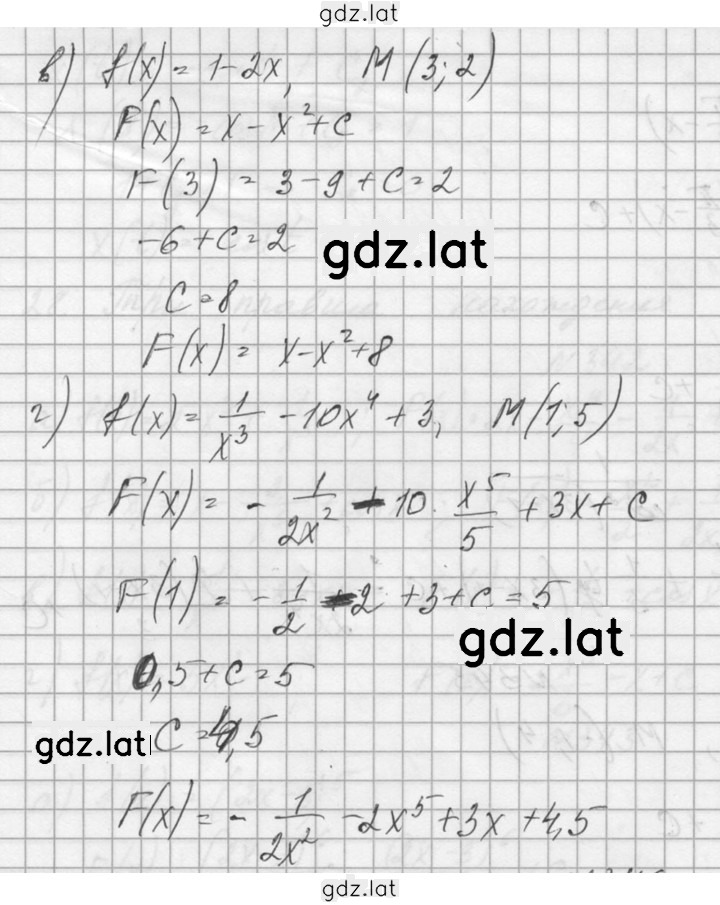 gdz.lat
в) f(x) = 1-2x, M(3; 2)
F(x) = x - x² + C
F(3) = 3 - 9 + C = 2
-6 + C = 2
gdz.lat
C = 8
F(x) = x - x² + 8
г) f(x) = 1/x³ - 10x⁴ + 3, M(1; 5)
F(x) = - 1/2x² - 10 · x⁵/5 + 3x + C
F(1) = - 1/2 - 2 + 3 + C = 5
gdz.lat
0,5 + C = 5
gdz.lat
C = 4,5
F(x) = - 1/2x² - 2x⁵ + 3x + 4,5
gdz.lat